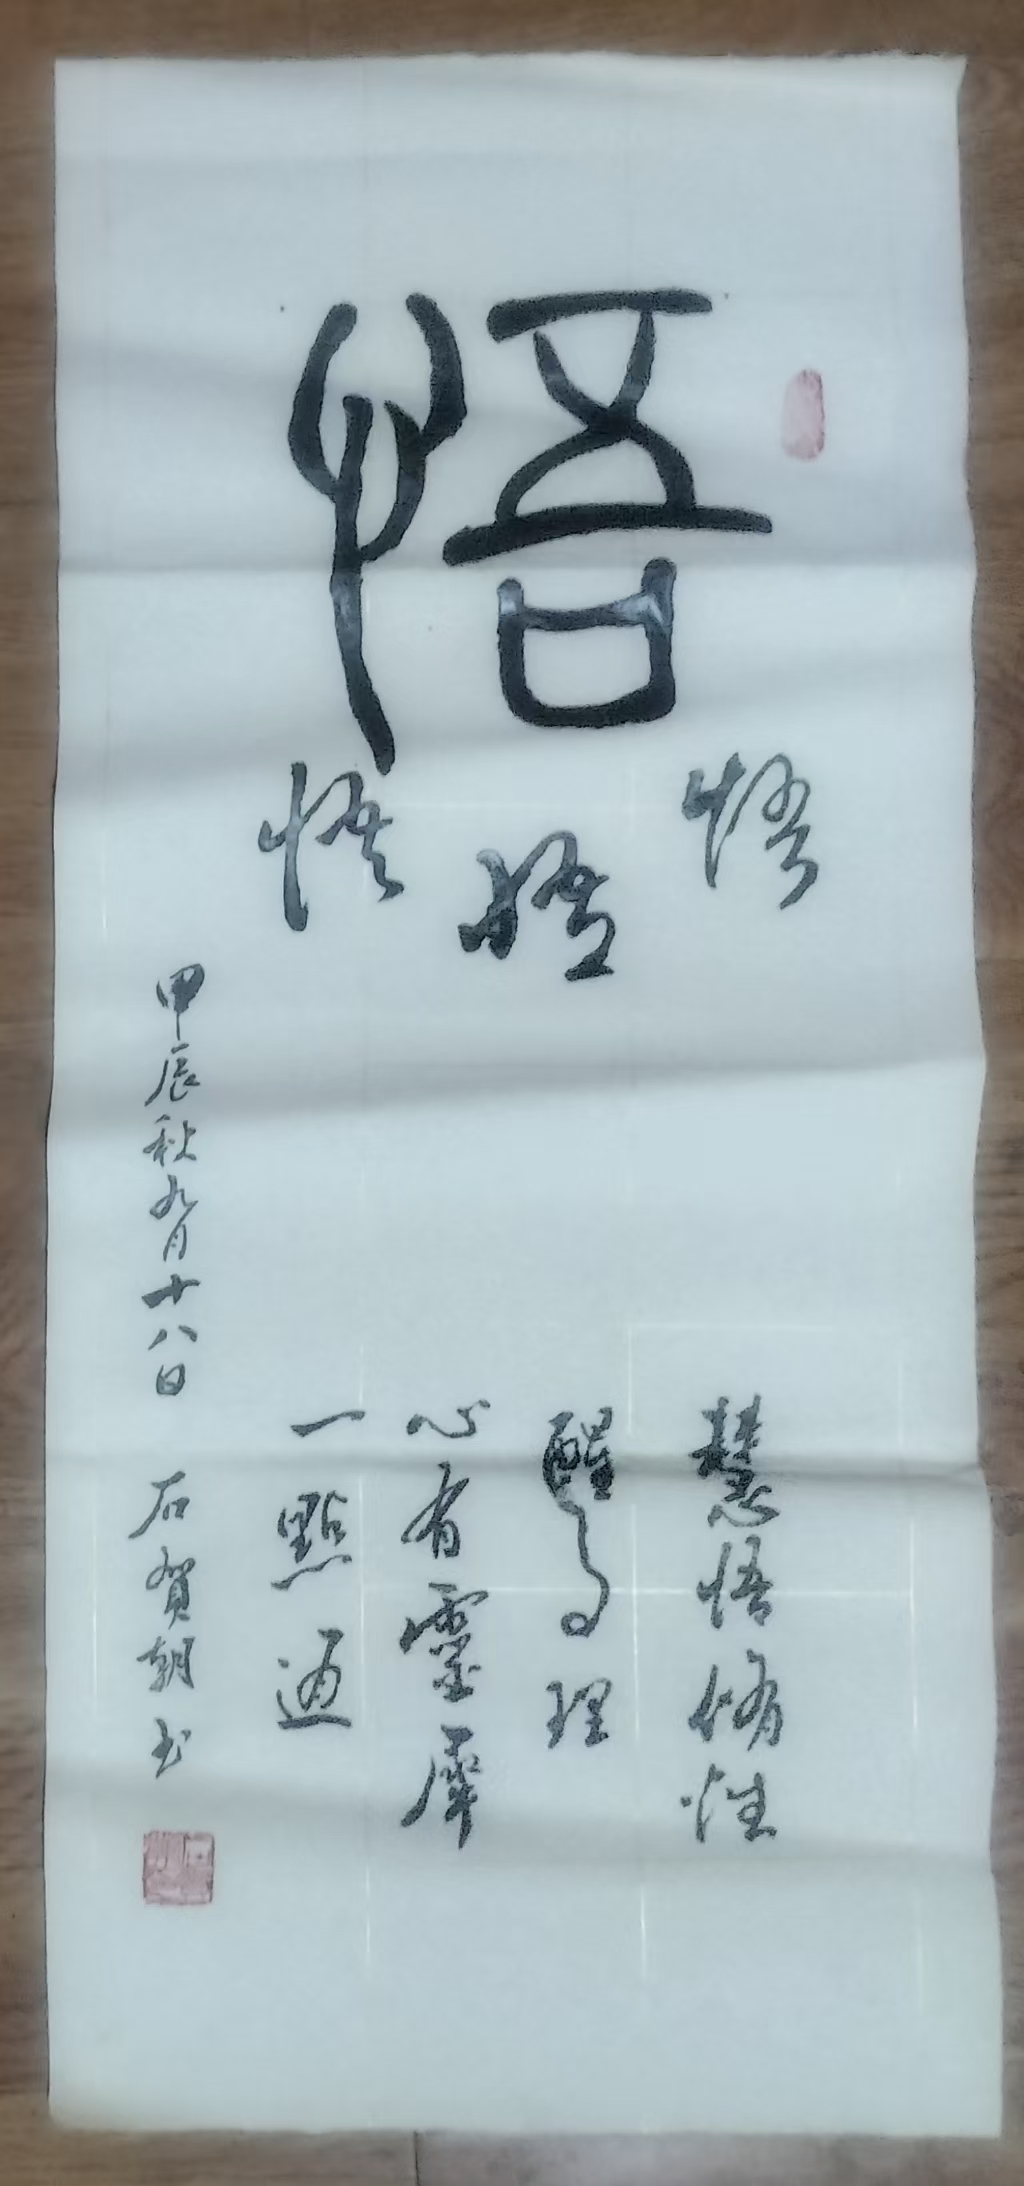 悟
悟
悟
悟
慧悟脩性
醒了理
心有靈犀
一點通
甲辰秋九月十八日 石賀朝书